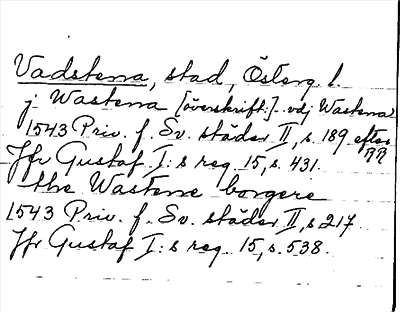 Vadstena, stad, Österg. l.
j Wastena [överskrift:]. vdj Wastena
1543 Priv. f. Sv. städer II, s. 189 efter RR
Jfr Gustaf I:s reg. 15, s. 431.
the Wastene borgere
1543 Priv. f. Sv. städer II, s 217
Jfr Gustaf I:s reg. 15, s. 538.